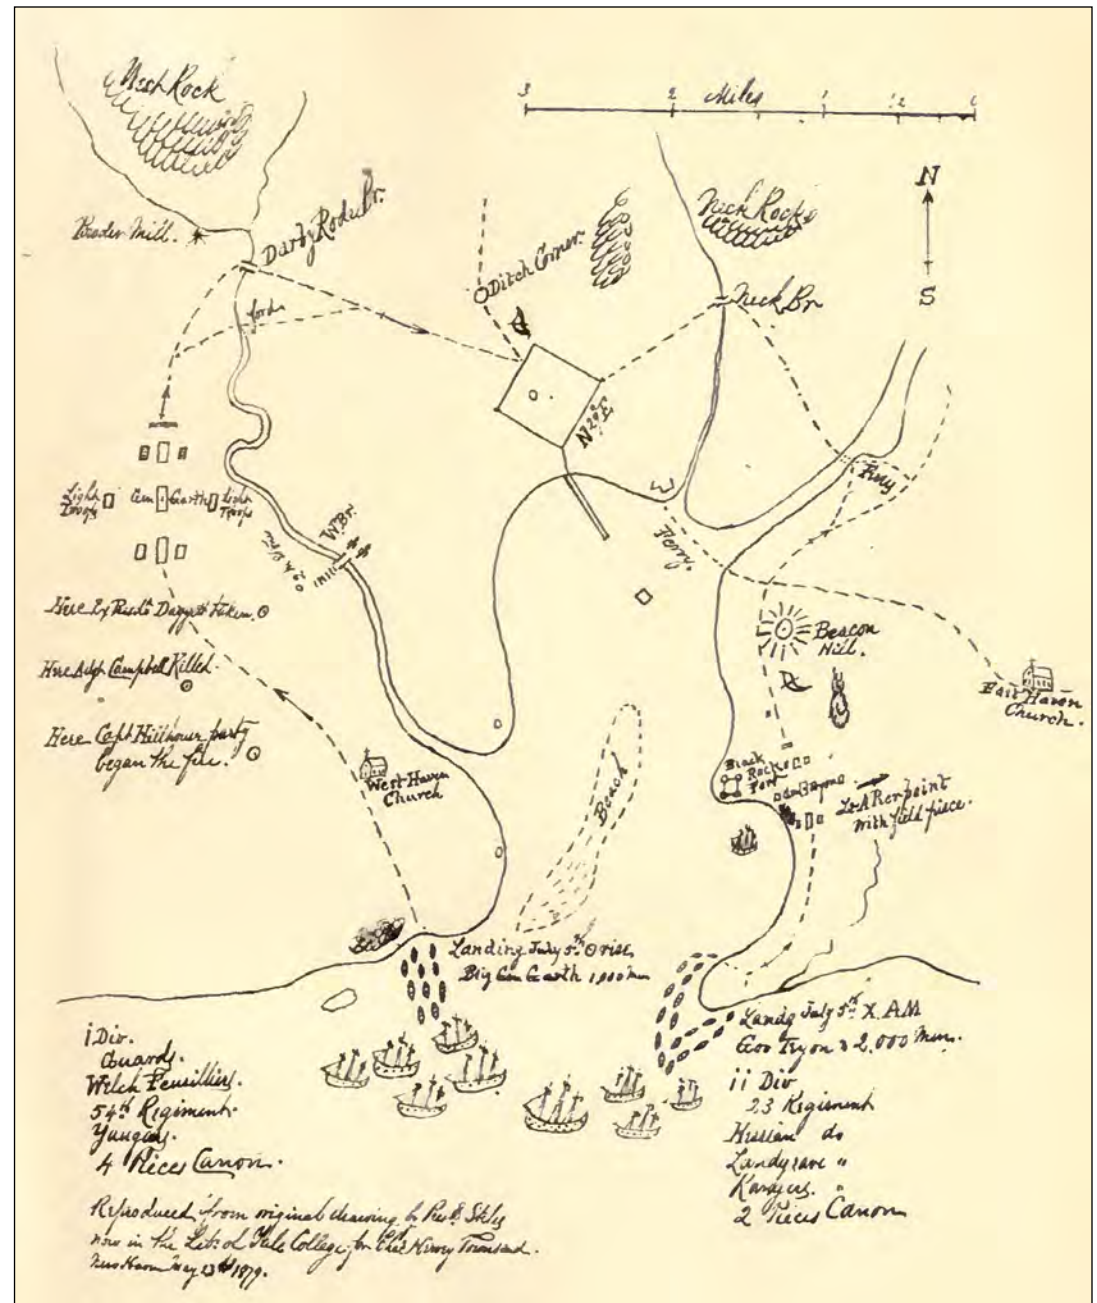 West Rock
3 2 Miles 1 12 0
Neck Rocks
N
S
Powder Mill.
Darby Road Br.
Ditch Corner.
Neck Br
ford
N 29° E
Light Troops
Gen Garth
Light Troops
W. Br.
Ferry
Ferry.
Here Ex Presdt Daggett taken.
Beacon Hill.
Here Adgt Campbell Killed.
East Haven Church.
Here Capt Hillhouse party
began the fire.
West Haven
Church
Beach
Black
Rock
Fort
with field piece.
Landing July 5th rise
Big Gen Garth 1,000 men
Landg July 5th X. AM
Gov Tryon 2,000 men.
i Div.
Guards.
Welch Feusilliers.
54th Regiment.
Yaugers.
4 Pieces Canon.
ii Div
23 Regiment
Hessian do
Landgrave "
2 Pieces Canon
Reproduced from original drawing by Prest Stiles
now in the Lib. of Yale College, for Chas Hervey Townsend.
New Haven May 23rd 1879.